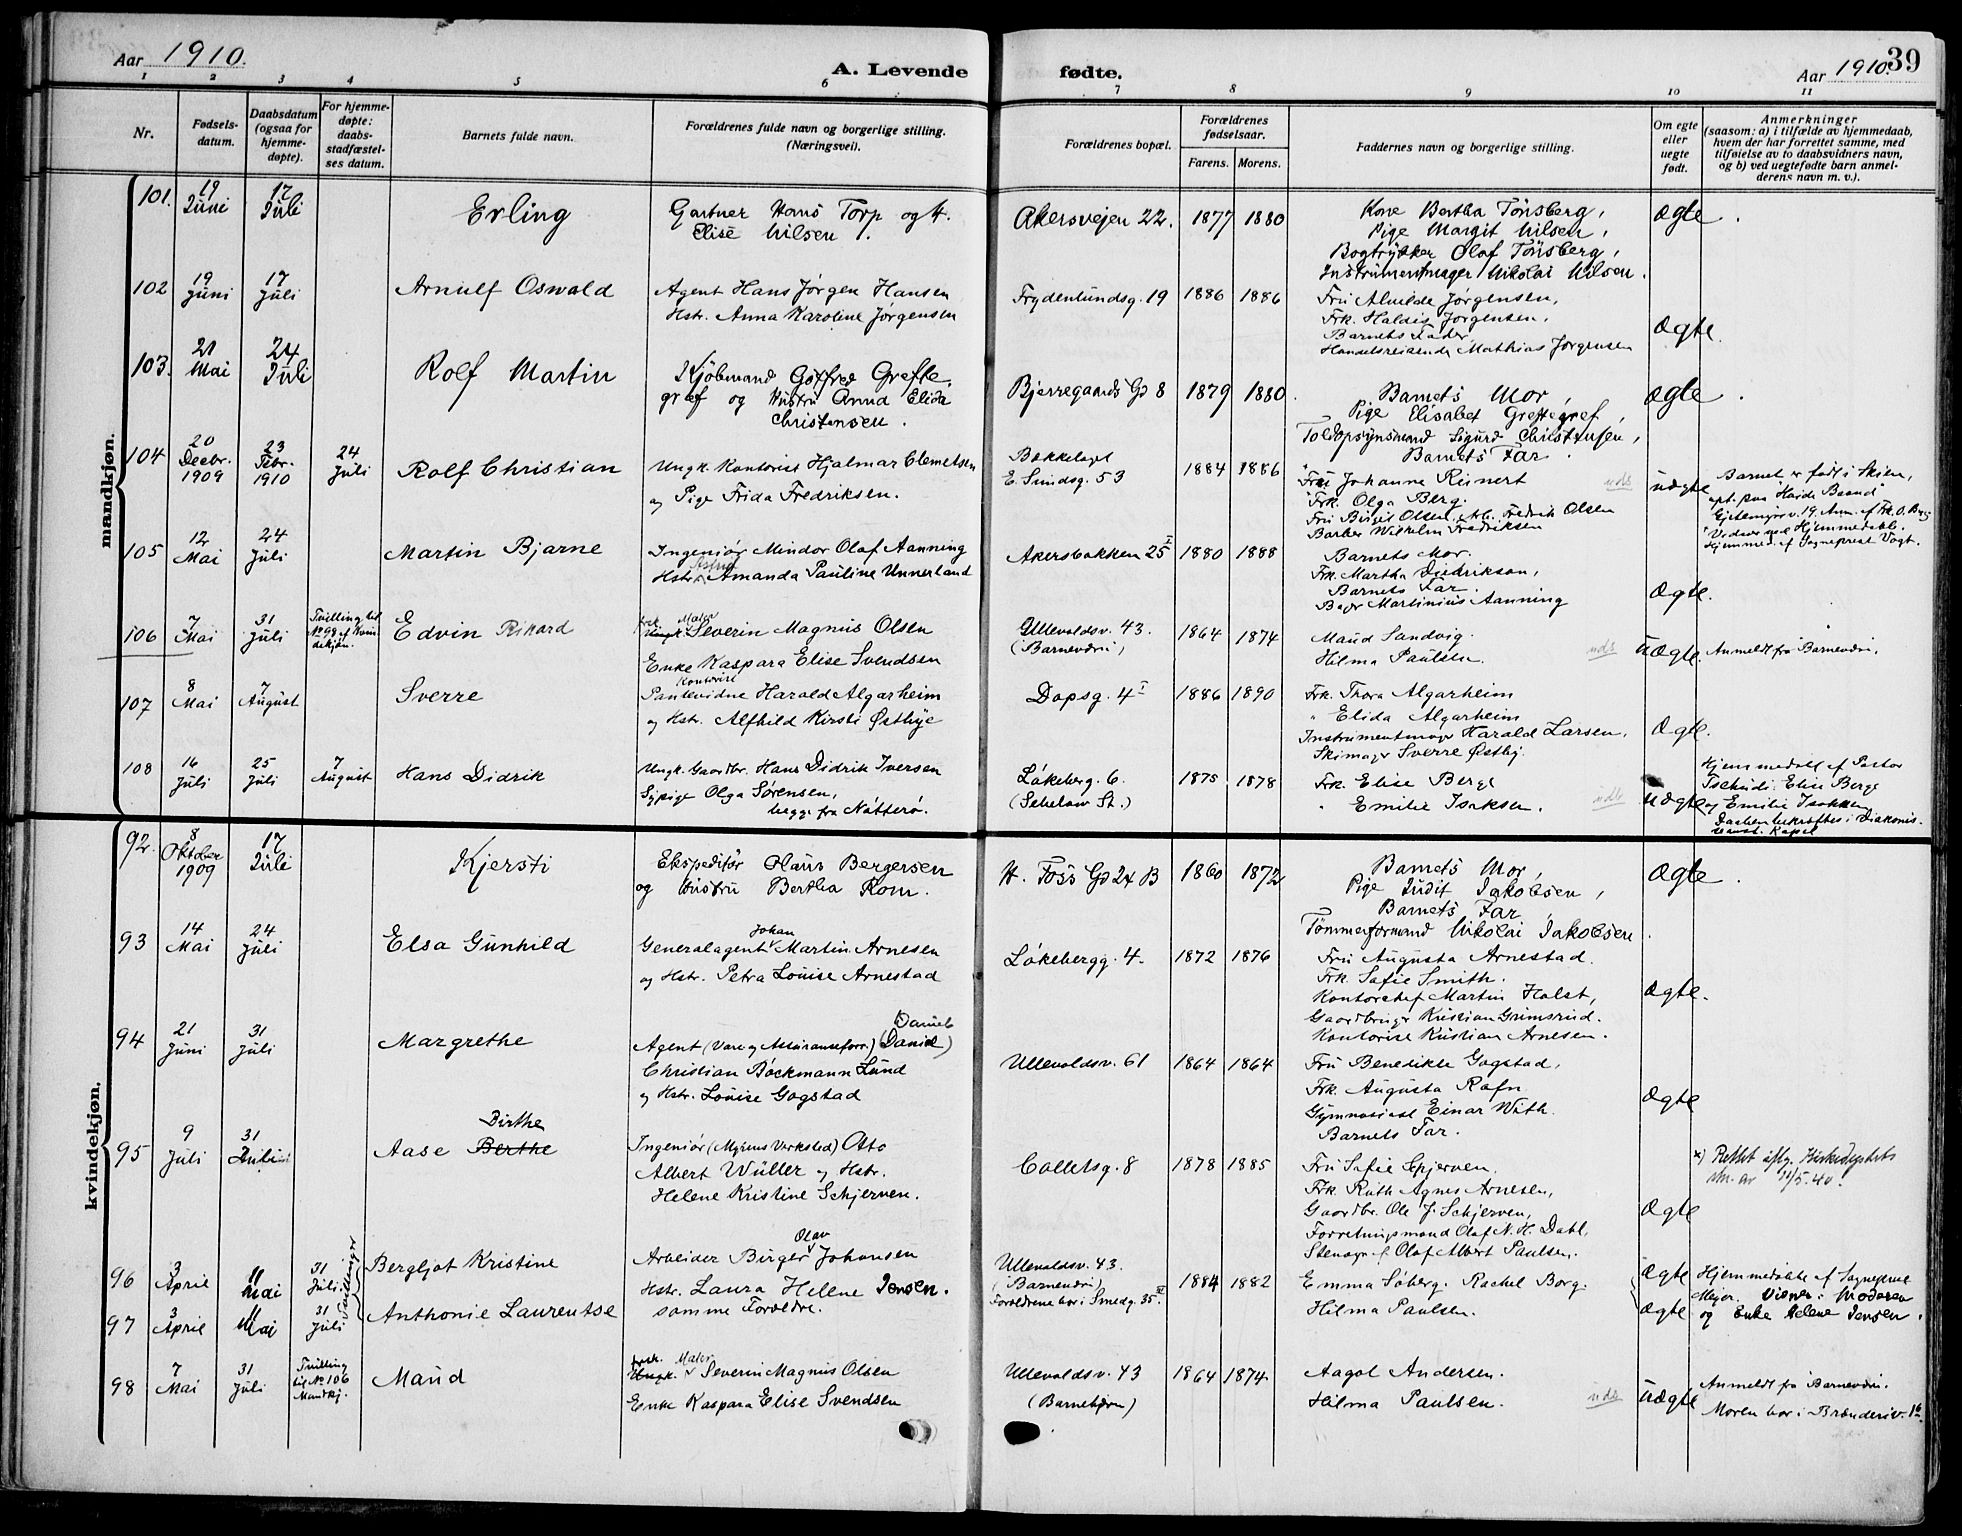 Aar 1910.
A. Levende fødte.
Aar 1910.
39
1 2 3 4 5 6 7 8 9 10 11
Nr.
Fødsels-
datum.
Daabsdatum
(ogsaa for
hjemme-
døpte).
For hjemme-
døpte:
daabs-
stadfæstel-
ses datum.
Barnets fulde navn.
Forældrenes fulde navn og borgerlige stilling.
(Næringsvei).
Forældrenes bopæl.
Forældrenes
fødselsaar.
Farens. Morens.
Faddernes navn og borgerlige stilling.
Om egte
eller
uegte
født.
Anmerkninger
(saasom: a) i tilfælde av hjemmedaab,
hvem der har forrettet samme, med
tilføielse av to daabsvidners navn,
og b) ved uegtefødte barn anmel-
derens navn m. v.).
mandkjøn.
101. 19 Juni 17 Juli Erling
Gartner Hans Torp og H.
Elise Nilsen.
Akersvejen 22. 1877 1880
Kone Bertha Tönsberg,
Pige Margit Nilsen,
Bogtrykker Olaf Tönsberg,
Instrumentmager Nikolai Nilsen.
Ægte.
102 19 Juni 17 Juli Arnulf Oswald
Agent Hans Jørgen Hansen
Hstr. Anna Karoline Jørgensen
Frydenlundsg. 19 1886 1886
Fru Alvilde Jørgensen,
Frk. Haldis Jørgensen,
Barnets Fader,
Handelsreisende Mathias Jørgensen
Ægte.
103. 21 Mai 24 Juli Rolf Martin
Kjöbmand Gotfred Grefte-
gref og Hustru Anna Elida
Christensen.
Bjerregaards Gd 8 1879 1880.
Barnets Mor,
Pige Elisabet Greftegref,
Toldopsynsmand Sigurd Christensen,
Barnets Far.
Ægte.
104 20 Decbr. 1909 23 Febr. 1910 24 Juli Rolf Christian
Ungk. Kontorist Hjalmar Clemetsen
og Pige Frida Fredriksen.
Bakkelaget
E. Sundsg. 53 1884 1886
Fru Johanne Reinert
Frk. Olga Berg.
Fru Birgit Olsen, Fredrik Olsen
Barber Wilhelm Fredriksen
uds uægte
Barnet er født i Skien,
Hjemmed. af Sogneprest Vogt.
105 12 Mai 24 Juli Martin Bjarne
Ingeniør Mindor Olaf Aanning
Hstr. Astrid Amanda Pauline Unnerland
Akersbakken 25 I 1880 1888
Barnets Mor.
Frk. Martha Diedrikson,
Barnets Far.
Bager Martinius Aanning
Ægte.
106 7 Mai 31 Juli Tvilling til
No 98 af Kvin-
dekjøn. Edvin Rikard
frsk. Maler
Ungk. Severin Magnus Olsen
Enke Kaspara Elise Svendsen
Ullevoldsv. 43.
(Barnevdn.) 1864 1874
Maud Sandvig.
Hilma Paulsen.
uds uægte. Anmeldt fra Barnevdn.
107 8 Mai 7 August Sverre
Kontorist
Pantevidne Harald Algarheim
og Hstr. Alfhild Kirsti Østbye
Dopsg. 4 I 1886 1890
Frk. Thora Algarheim
" Elida Algarheim
Instrumentmagr Harald Larsen,
Skimagr Sverre Østby.
Ægte.
108 16 Juli 25 Juli 7 August Hans Didrik
Ungk. Gaardbr. Hans Didrik Iversen
Sypige Olga Sørensen,
begge fra Nøtterø.
Løkeberg. 6.
(Sebelow St.) 1875 1878
Frk. Elise Berge
" Emilie Isaksen.
uds uægte
Hjemmedøbt af Pastor
Tschudi. Elise Berge
og Emilie Isaksen
Daaben bekræftes i Diakonis-
seanst. Kapel
kvindekjøn.
92. 8 Oktober 1909 17 Juli Kjersti
Ekspeditør Hans Bergersen
og Hustru Bertha Rom.
H. Foss Gd 24 B 1860 1872
Barnets Mor,
Pige Judit Jakobsen,
Barnets Far
Tømmerformand Nikolai Jakobsen.
Ægte.
93 14 Mai 24 Juli Elsa Gunhild
Johan
Generalagent Martin Arnesen
og Hstr. Petra Louise Arnestad
Løkebergg. 4. 1872 1876
Fru Augusta Arnestad.
Frk. Sofie Smith.
Kontorchef Martin Holst,
Gaardbruger Kristian Grimsrud.
Kontorist Kristian Arnesen.
Ægte.
94 21 Juni 31 Juli Margrethe
Daniel
Agent (Vare og Assuranseforr.) (Daniel)
Christian Bøckmann Lund
og Hstr. Louise Gogstad
Ullevoldsv. 61 1864 1864
Fru Benedikte Gogstad,
Frk. Augusta Rafn
Gymnasiast Einar With.
Barnets Far.
Ægte
95 9 Juli 31 Juli Aase Berthe Birthe
Ingeniør (Myrens Verksted) Otto
Albert Wüller og Hstr.
Helene Kristine Schjerven.
Colletsg. 8 1878 1885
Fru Sofie Schjerven.
Frk. Ruth Agnes Arnesen,
Gaardbr. Ole J. Schjerven,
Forretningsmand Olaf N. H. Dahl,
Stenogr. Olaf Albert Paulsen.
Ægte
x) Rettet iflg. Kirkedeptets
skr. av 11/5.40.
96 3 April 11 Mai 31 Juli. Tvillinger Bergljot Kristine
Olav
Arbeider Birger Johansen
Hstr. Laura Helene Jensen.
Ullevoldsv. 43.
(Barnevdn)
Forældrene bor i Smedg. 35. 1884 1882
Emma Søberg. Rachel Borg.
Ægte
Hjemmedøbte af Sogneprest
Mejer. Vidner: Moderen
og Enke Helene Jensen.
97 3 April 11 Mai 31 Juli Anthonie Laurentse
samme Forældre.
Hilma Paulsen.
Ægte
98 7 Mai 31 Juli Tvilling
til No 106
Mandkj. Maud
frsk. Maler
Ungk. Severin Magnus Olsen
Enke Kaspara Elise Svendsen
Ullevoldsv. 43
(Barnehjem) 1864 1874.
Aagot Andersen.
Hilma Paulsen.
uds uægte
Anmeldt fra Barnevdn.
Moren bor i Brænderiv. 16.